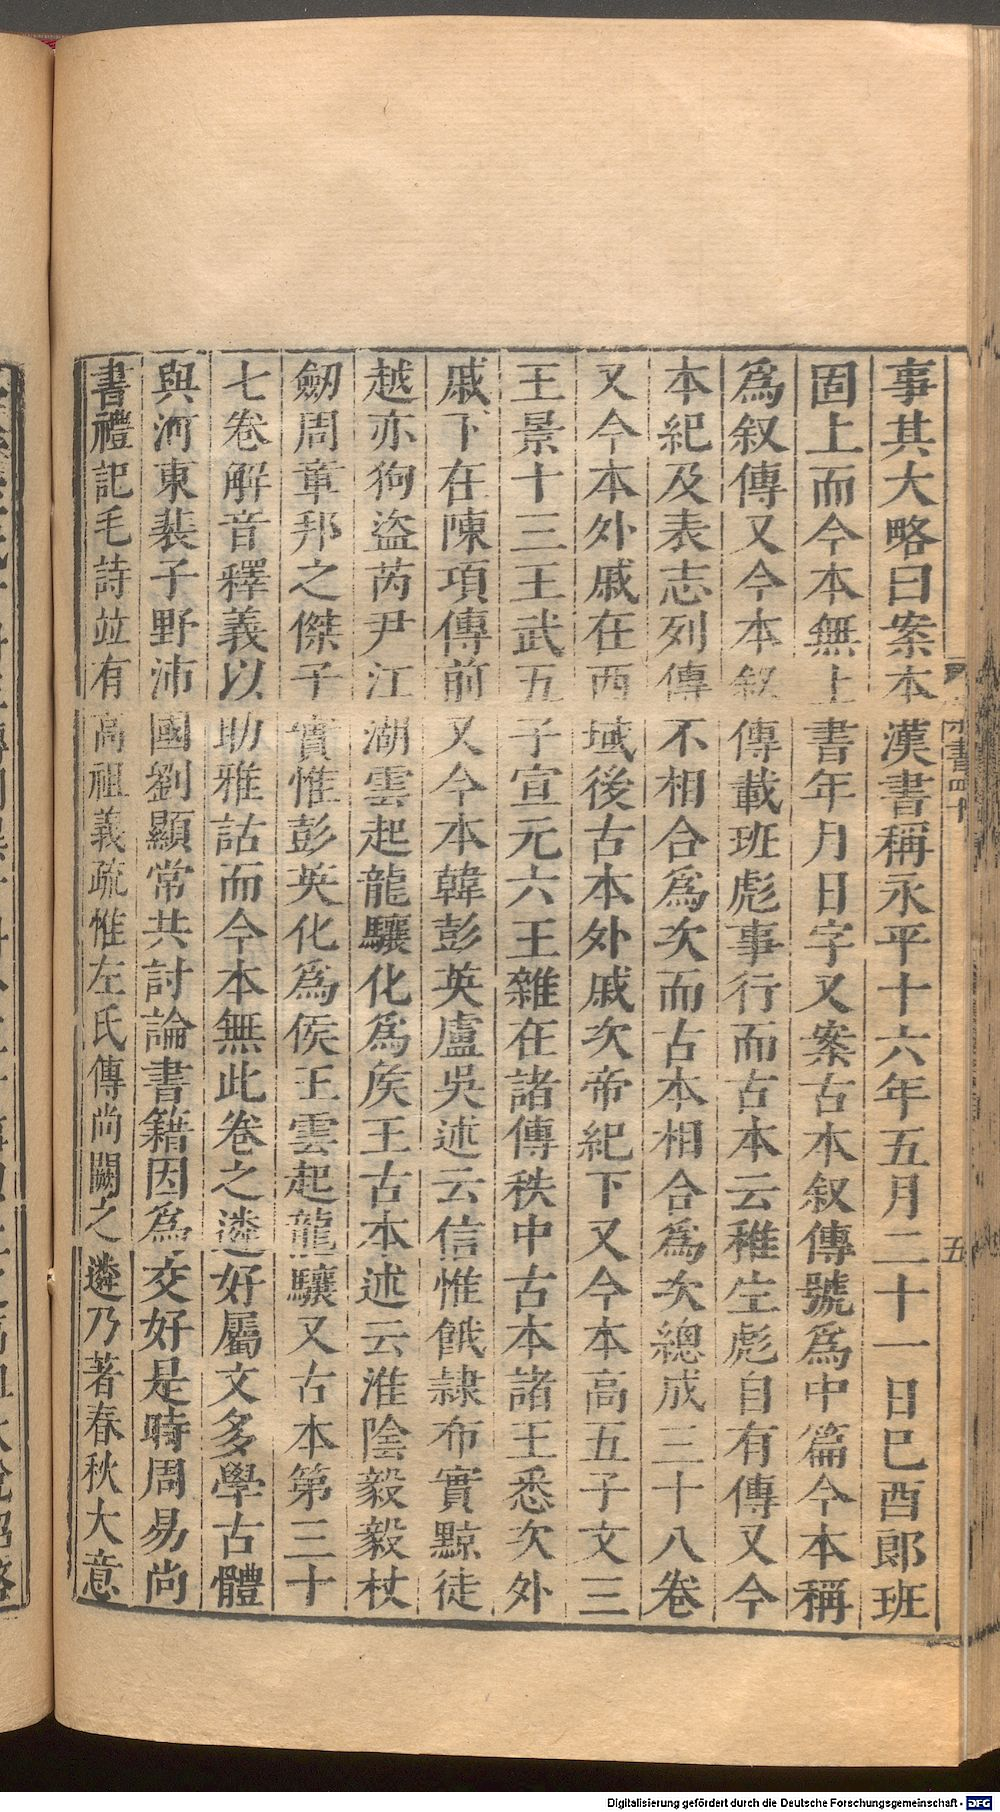 事其大略曰案本漢書稱永平十六年五月二十一日巳酉郎班
固上而今本無上書年月日字又案古本叙傳號爲中篇今本稱
爲叙傳又今本叙傳載班彪事行而古本云稚生彪自有傳又今
本紀及表志列傳不相合爲次而古本相合爲次總成三十八卷
又今本外戚在西域後古本外戚次帝紀下又今本高五子文三
王景十三王武五子宣元六王雜在諸傳秩中古本諸王悉次外
戚下在陳項傳前又今本韓彭英盧吳述云信惟餓隸布實黥徒
越亦狗盜芮尹江湖雲起龍驤化爲矦王古本述云淮陰毅毅杖
劒周章邦之傑子實惟彭英化爲侯王雲起龍驤又古本第三十
七卷解音釋義以助雅詁而今本無此卷之遴好屬文多學古體
與河東裴子野沛國劉顯常共討論書籍因爲交好是時周易尚
書禮記毛詩並有高祖義疏惟左氏傳尚闕之遴乃著春秋大意
五
Digitalisierung gefördert durch die Deutsche Forschungsgemeinschaft - DFG